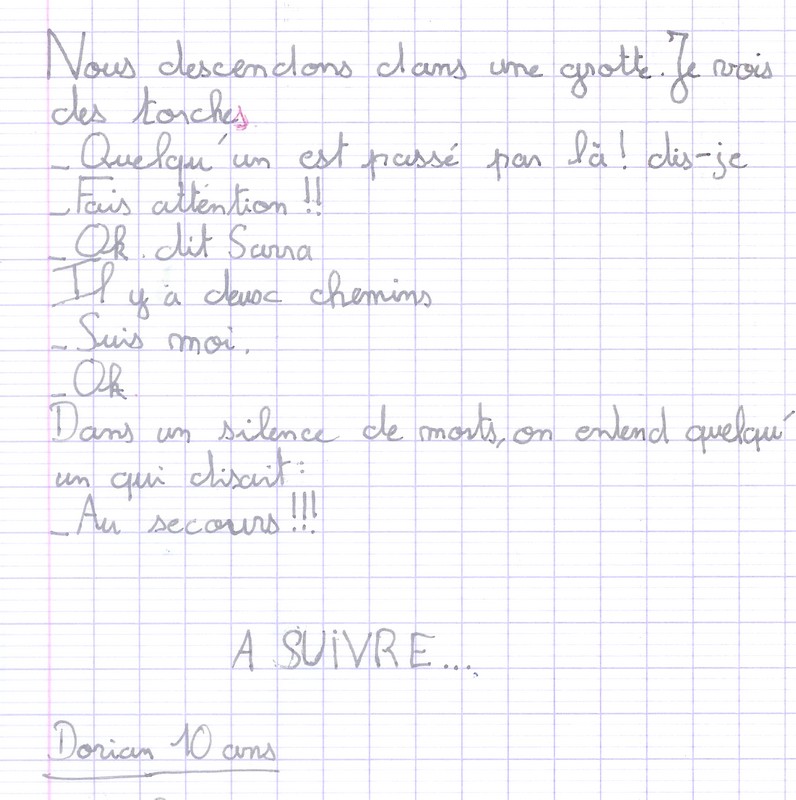 Nous descendons dans une grotte. Je vois
des torches
_ Quelqu'un est passé par là ! dis-je
_ Fais attention !!
_ Ok. dit Sarra
Il y a deux chemins
_ Suis moi.
_ Ok.
Dans un silence de morts, on entend quelqu'
un qui disait :
_ Au secours !!!
A SUIVRE...
Dorian 10 ans